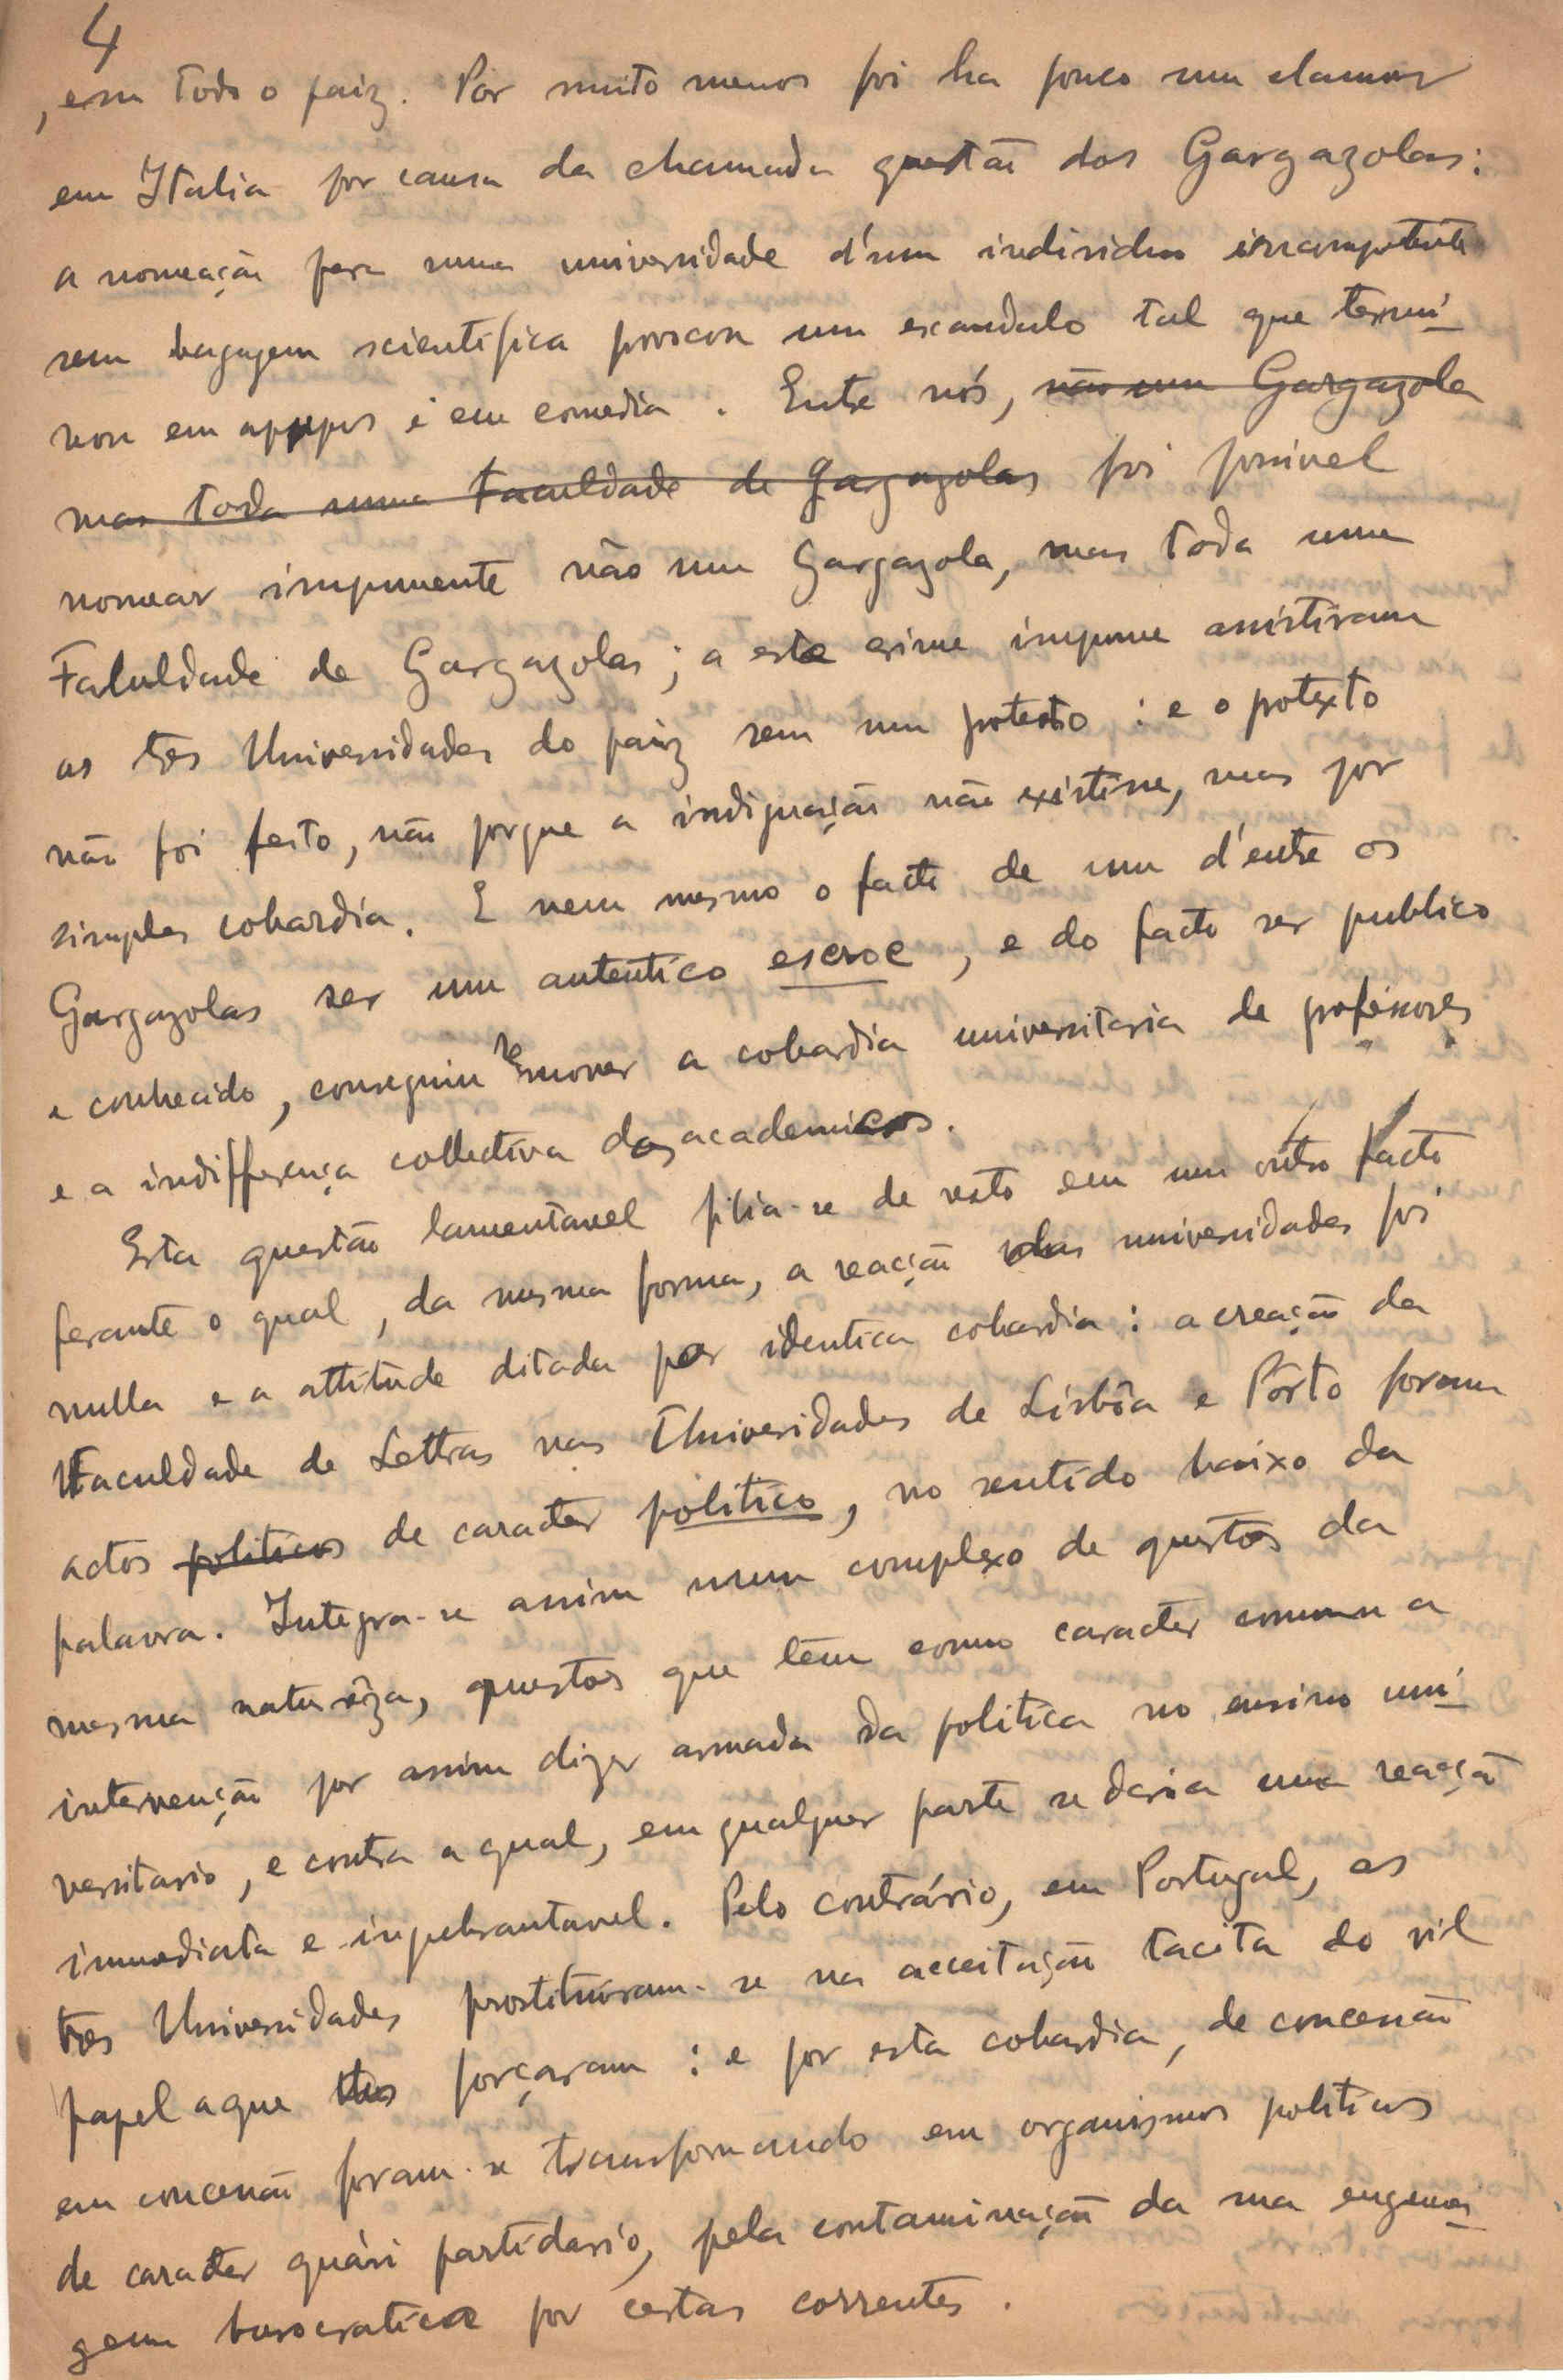 4
, em todo o paiz. Por muito menos foi ha pouco um clamor
em Italia por causa da chamada questão dos Gargazolas:
a nomeação para uma universidade d'um individuo incompetente
sem bagagem scientifica provocou um escandalo tal que termi-
nou em apupos e em comedia. Entre nós, não um Gargazola
mas toda uma Faculdade de Gargazolas foi possivel
nomear impunemente não um Gargazola, mas toda uma
Faculdade de Gargazolas; a este crime impune assistiram
as tres Universidades do paiz sem um protesto: e o protexto
não foi feito, não porque a indignação não existisse, mas por
simples cobardia. E nem mesmo o facto de um d'entre os
Gargazolas ser um autentico escroc, e do facto ser publico
e conhecido, conseguiu remover a cobardia universitaria de professores
e a indifferença collectiva dos academicos.
Esta questão lamentavel filia-se de resto em um outro facto
perante o qual, da mesma forma, a reacção das universidades foi
nulla e a attitude ditada por identica cobardia: a creação da
Faculdade de Lettras nas Universidades de Lisbôa e Pôrto foram
actos politicos de caracter politico, no sentido baixo da
palavra. Integra-se assim num complexo de questões da
mesma naturêza, questões que têm como caracter comum a
intervenção por assim dizer armada da politica no ensino uni-
versitario, e contra a qual, em qualquer parte se daria uma reacção
immediata e inquebrantavel. Pelo contrário, em Portugal, as
tres Universidades prostituiram-se na acceitação tacita do vil
papel a que as forçaram: e por esta cobardia, de concessão
em concessão foram-se transformando em organismos politicos
de caracter quási partidario, pela contaminação da sua engrena-
gem burocratica por certas correntes.